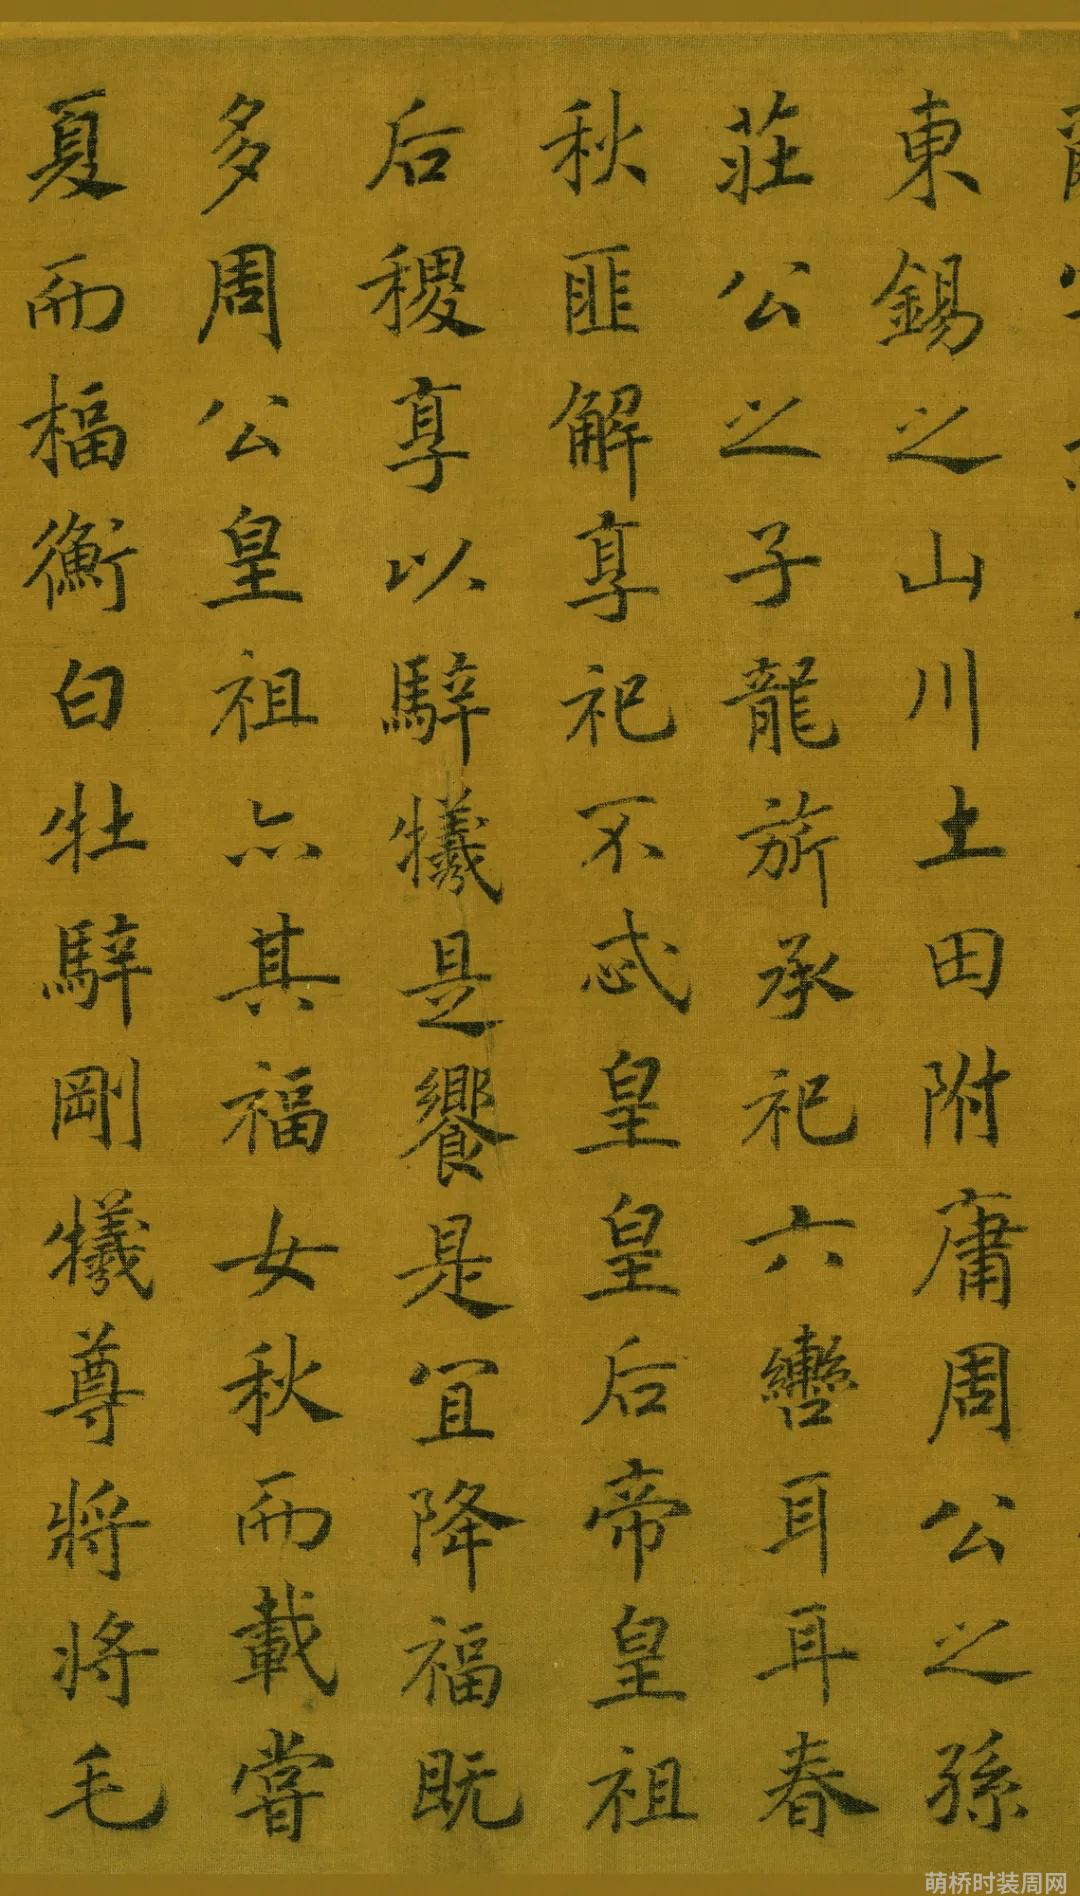 東錫之山川土田附庸周公之孫
莊公之子龍旂承祀六轡耳耳春
秋匪解享祀不忒皇皇后帝皇祖
后稷享以騂犧是饗是冝降福既
多周公皇祖亦其福女秋而載嘗
夏而楅衡白牡騂剛犧尊將將毛
萌桥时装周网